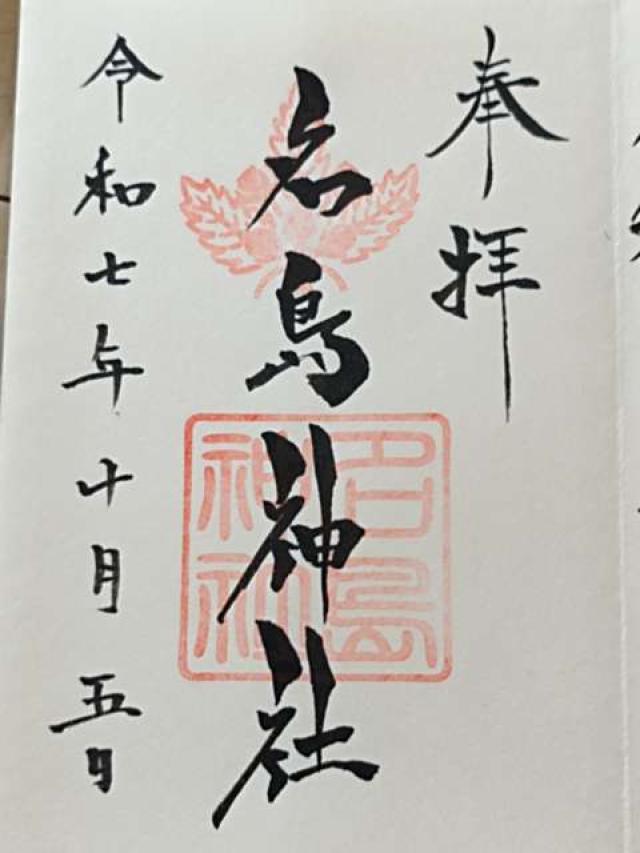 奉拝
名島神社
名島神社
令和七年十月五日